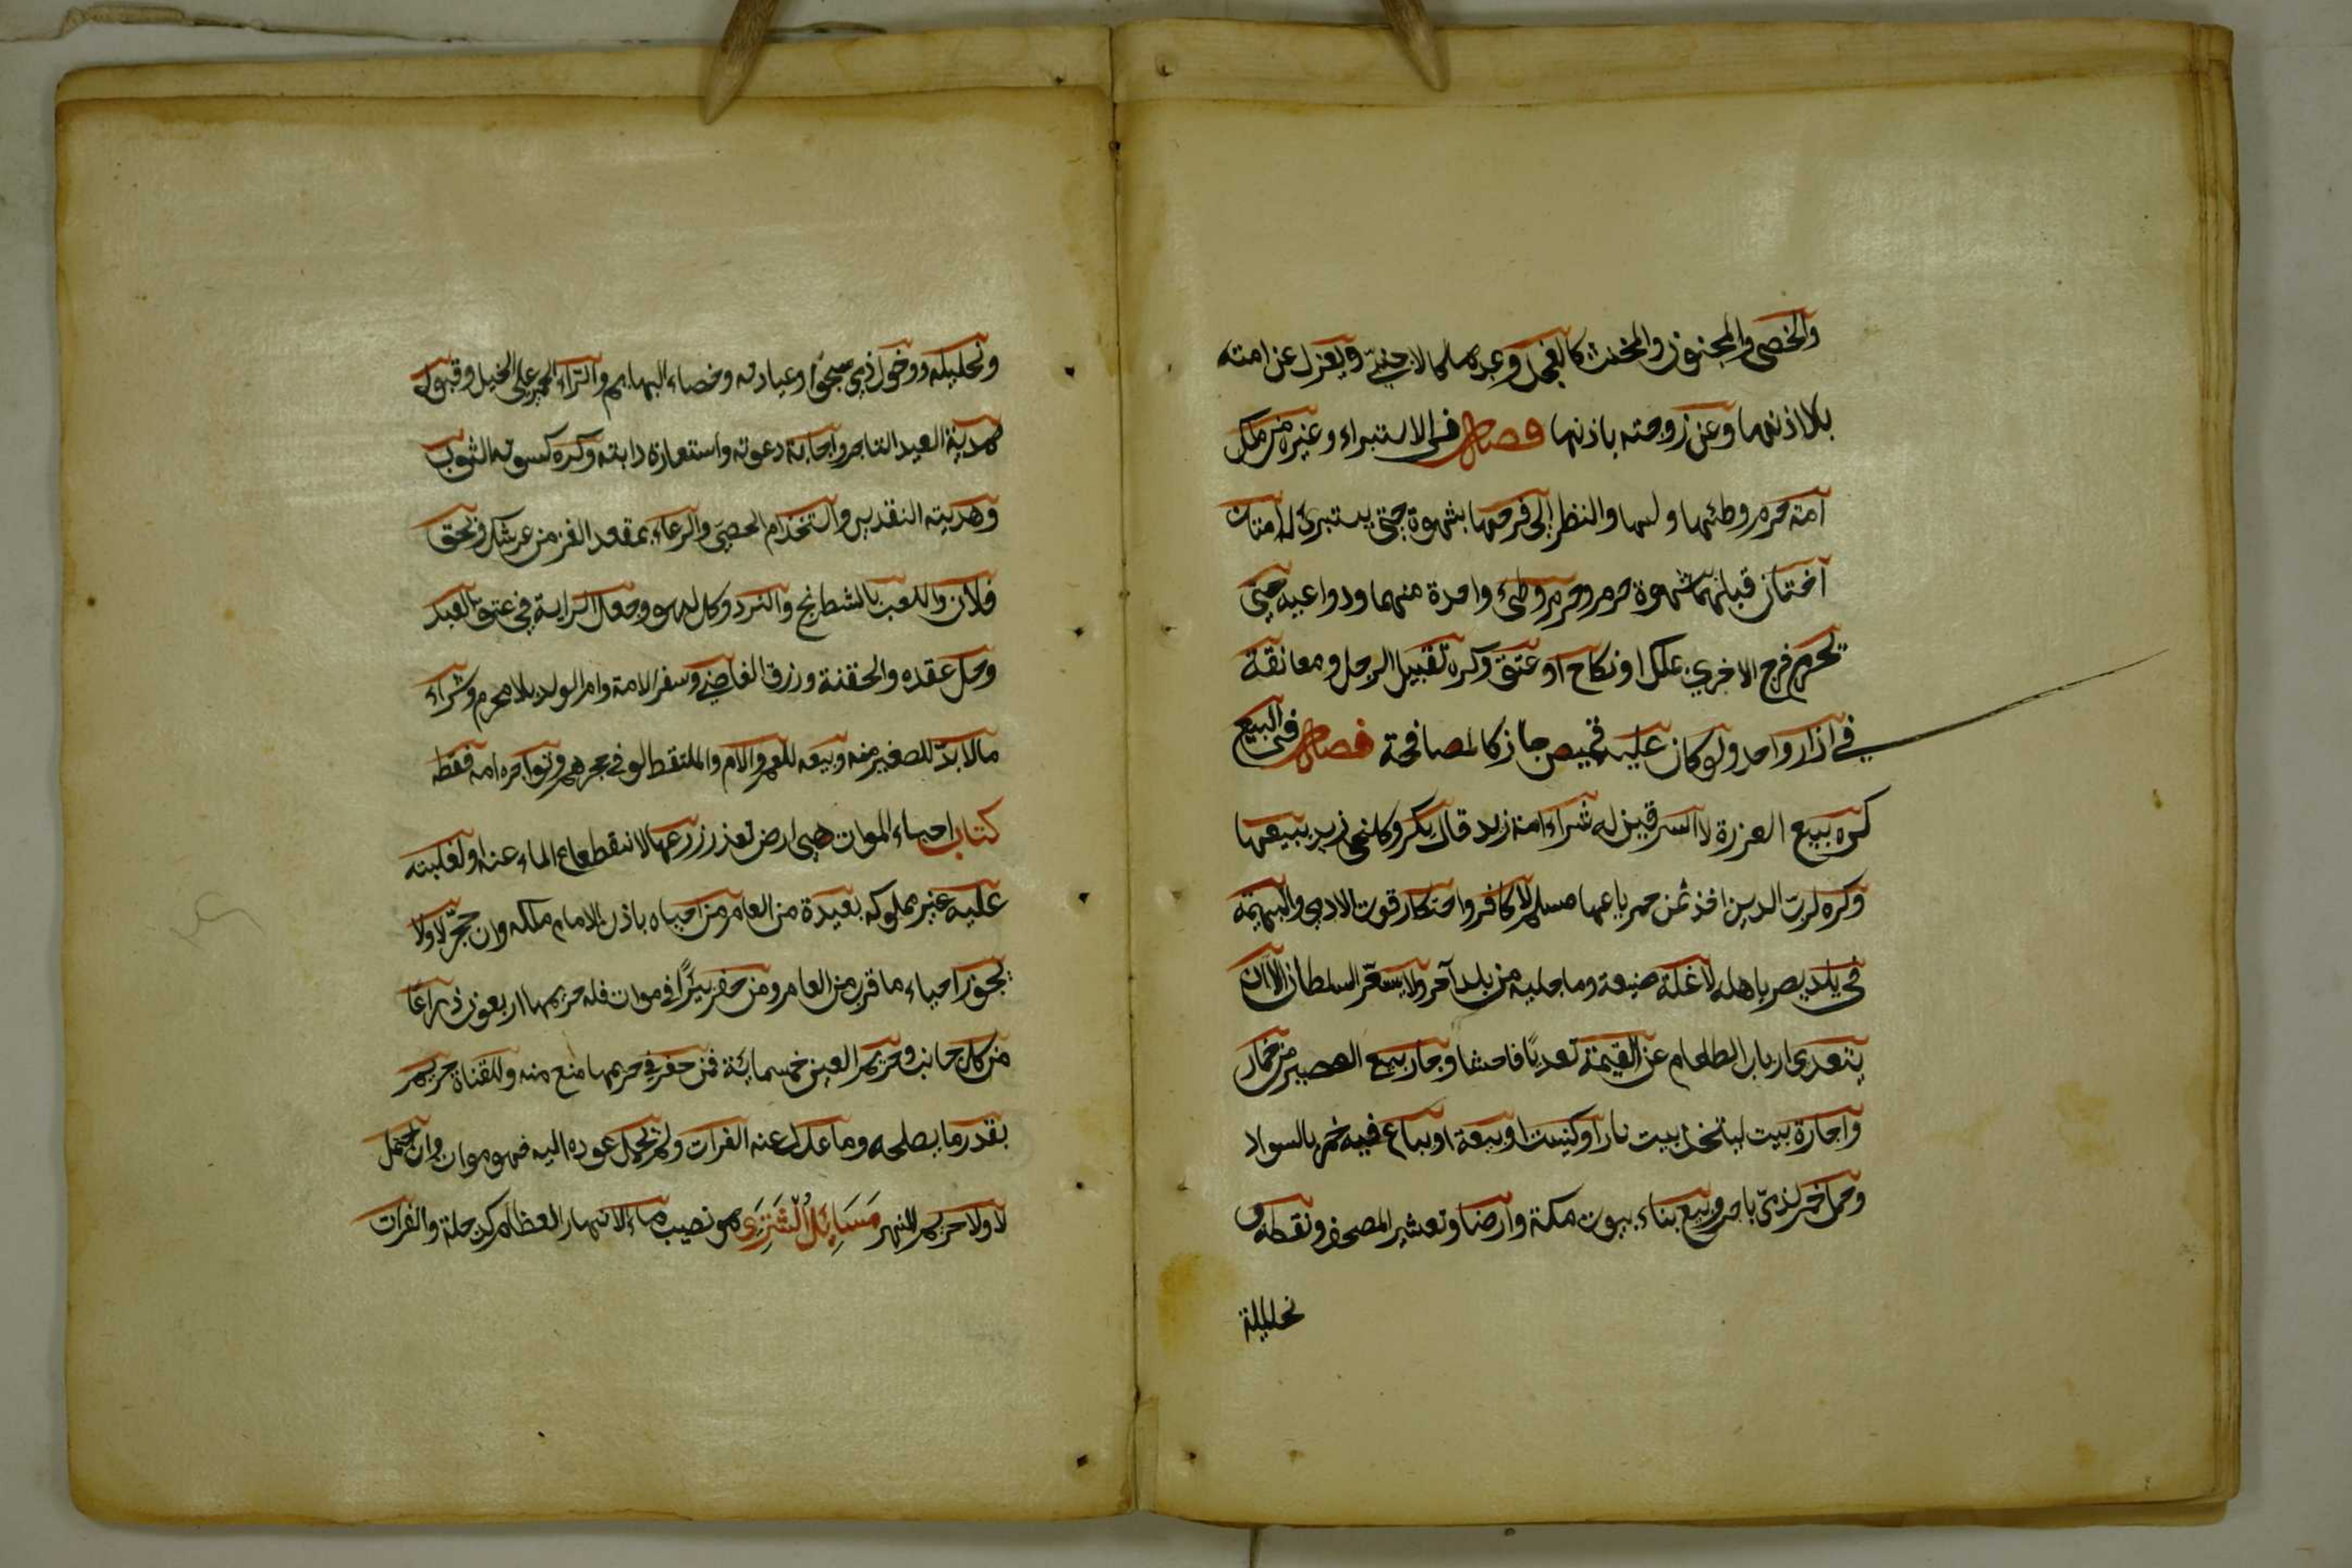 والخصي والمجنون والمخنث كالفحل وعبدها كالاجنبي ويعزل عن امته
بلا اذنها وعن زوجته باذنها فصل في الاستبراء وغيره من ملك
امة حرم وطئها ولمسها والنظر الى فرجها بشهوة حتى يستبرئ له امتان
اختان قبلهما بشهوة حرم وحرم وطئ واحدة منهما ودواعيه حتى
تحرم فرج الاخرى بملك او نكاح او عتق وكره تقبيل الرجل ومعانقة
في ازار واحد ولو كان عليه قميص جاز كالمصافحة فصل في البيع
كره بيع العزرة لا السرقين له شراء امة زيد قال بكر وكلني زيد ببيعها
وكره لرب الدين اخذ ثمن خمر باعها مسلم لا كافر واحتكار قوت الادمي والبهيمة
في بلد يضر باهله لا غلة ضيعة وما جلبه من بلد آخر ولا يسعر السلطان الا ان
يتعدى ارباب الطعام عن القيمة تعديًا فاحشا وجاز بيع العصير من خمار
واجارة بيت ليتخذ بيت نار او كنيسة او بيعة او يباع فيه خمر بالسواد
وحمل خمر لذمي باجر وبيع بناء بيوت مكة وارضها وتعشير المصحف ونقطه و
تحليلة
وتحليله ودخول ذمي مسجدًا وعيادته وخصاء البهايم وانزاء الحمير على الخيل وقبول
هدية العبد التاجر واجابة دعوته واستعارة دابته وكره كسوته الثوب
وهديته النقدين واستخدام الخصي والدعاء بمقعد العز من عرشك وبحق
فلان واللعب بالشطرنج والنرد وكل لهو وجعل الراية في عنق العبد
وحل عقده والحقنة ورزق القاضي وسفر الامة وام الولد بلا محرم وشراء
ما لا بد للصغير منه وبيعه للعم والام والملتقط لو في حجرهم وتؤاجره امه فقط
كتاب احياء الموات هي ارض تعذر زرعها لانقطاع الماء عنها او لغلبته
عليه غير مملوكه بعيدة من العامر من احياه باذن الامام ملكه وان حجر لا ولا
يجوز احياء ما قرب من العامر ومن حفر بئرًا في موات فله حريمها اربعون ذراعًا
من كل جانب وحريم العين خمسمائة فمن حفر في حريمها منع منه وللقناة حريم
بقدر ما يصلحه وما عدل عنه الفرات ولم يحتمل عوده اليه فهو موات وان احتمل
لا ولا حريم للنهر مَسَائِلُ الشِّرْبِ هو نصيب ماء الانهار العظام كدجلة والفرات